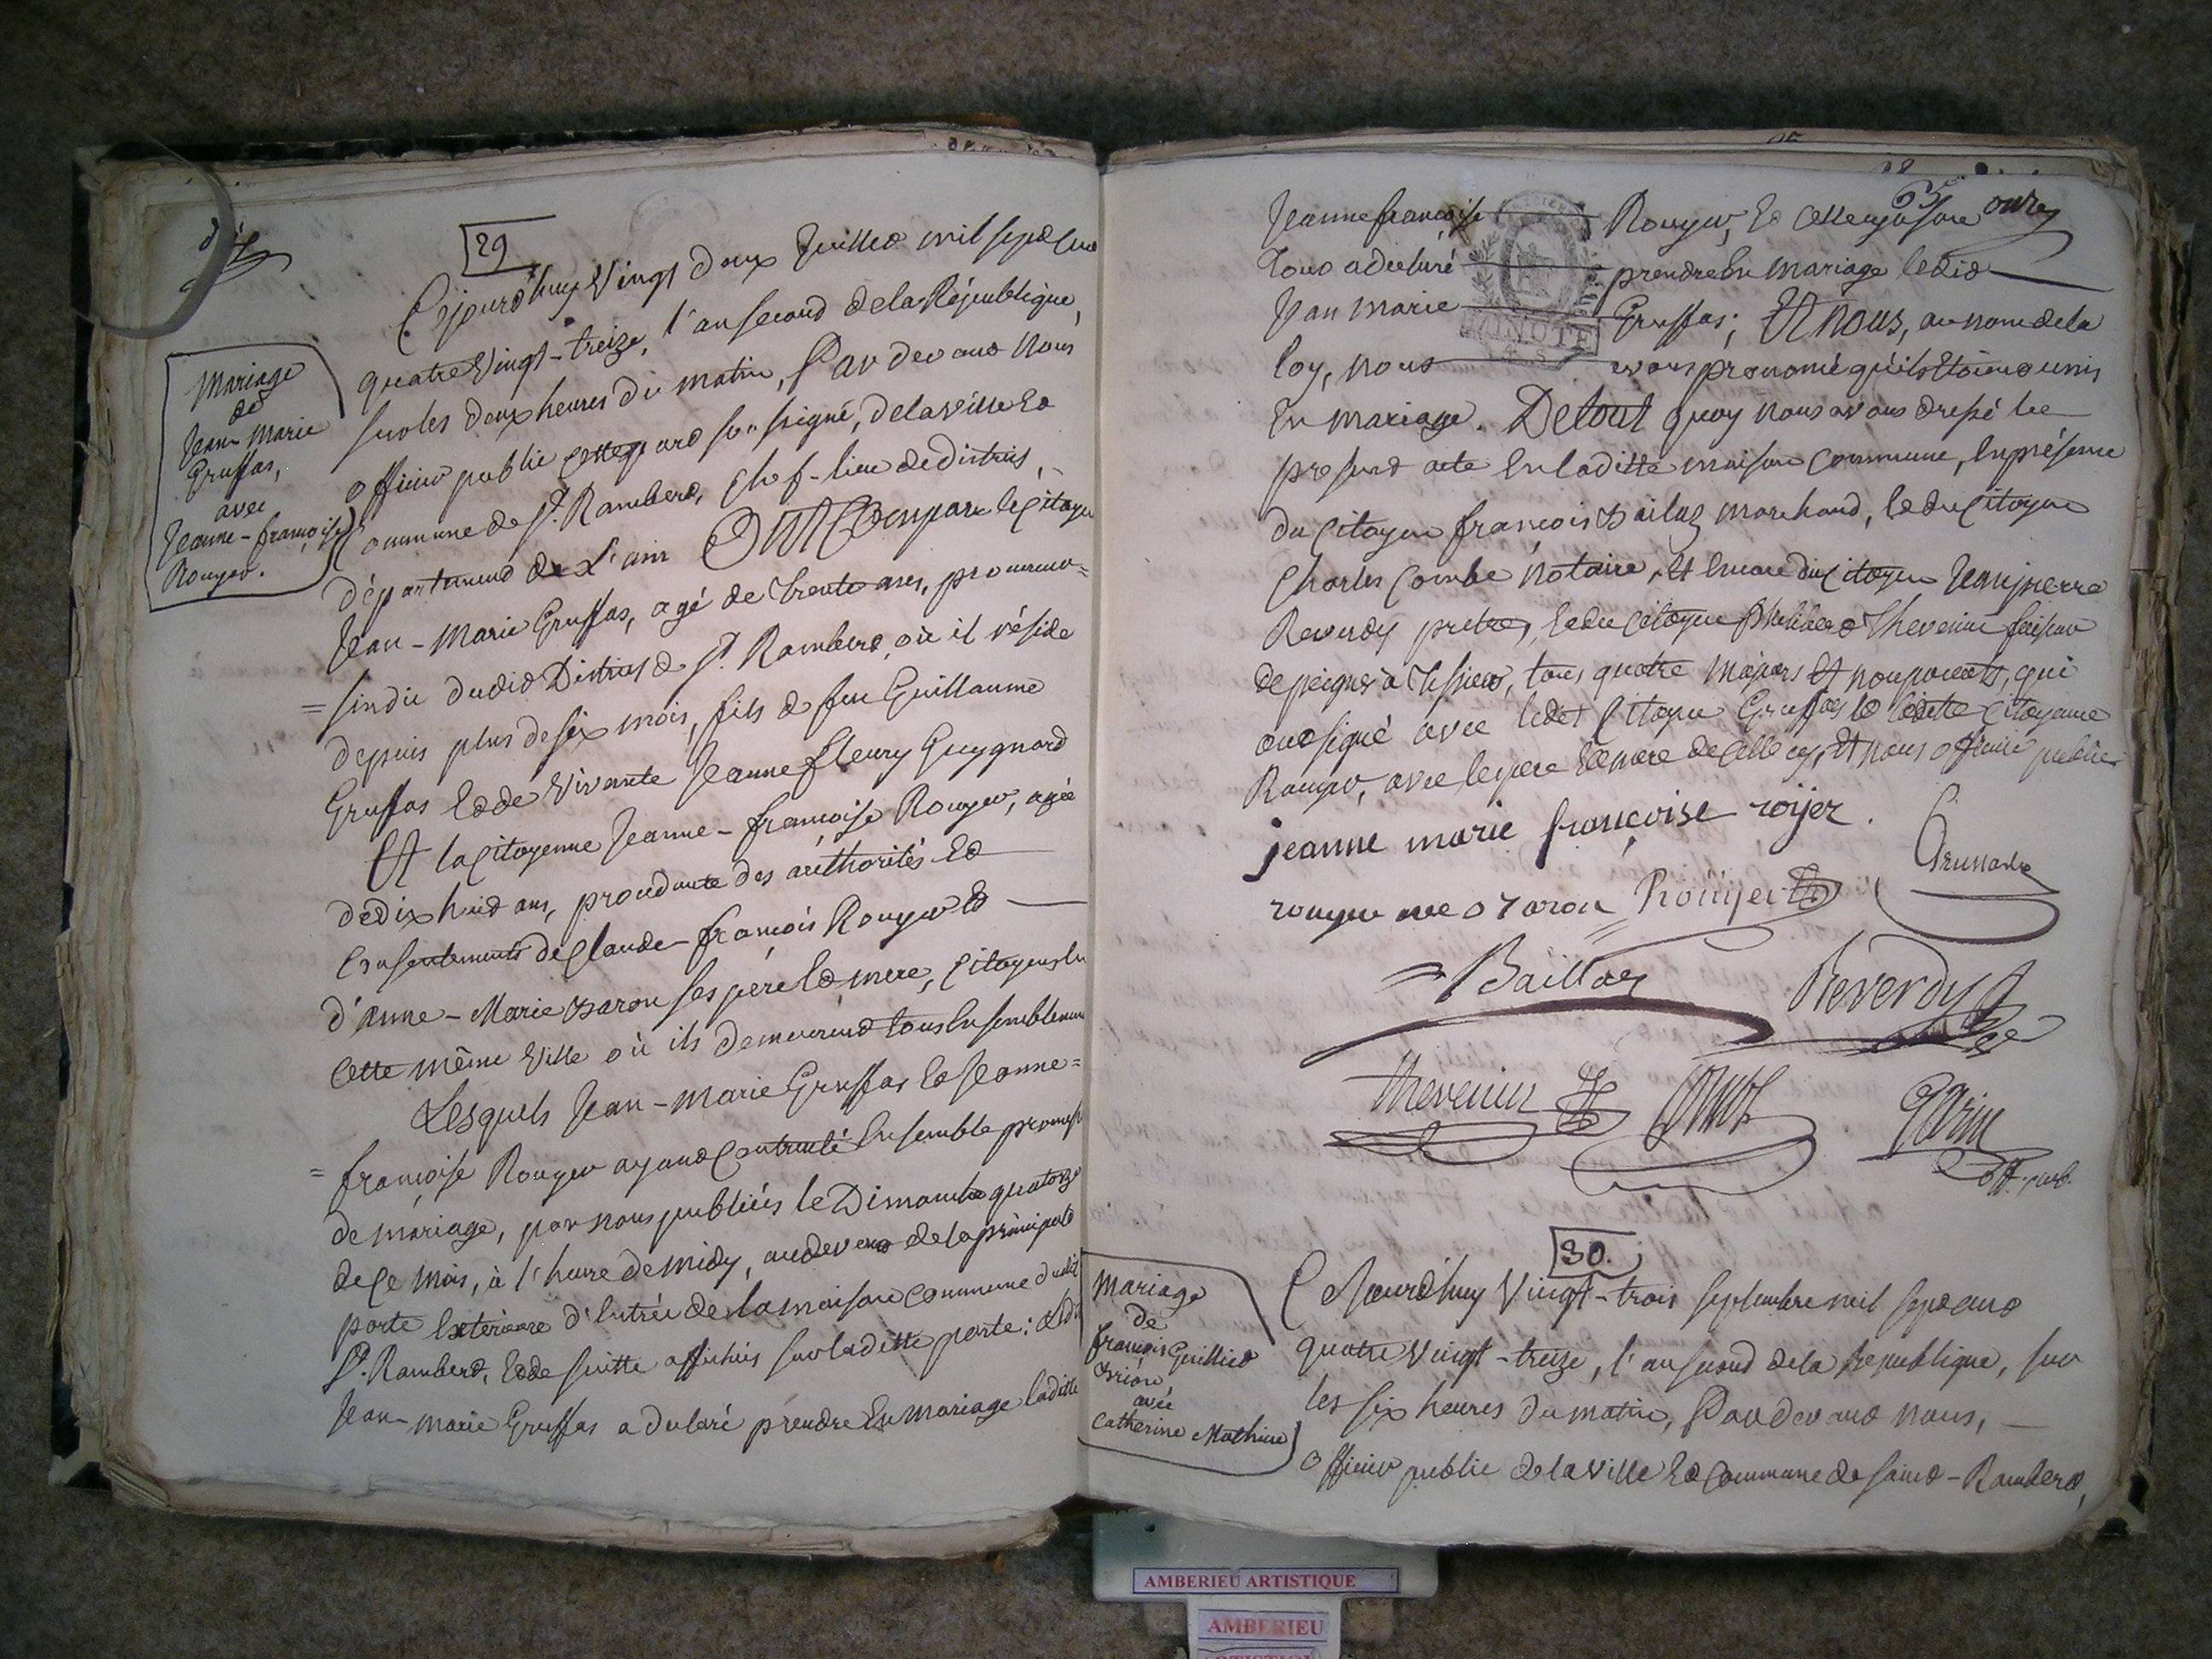 29
Cejourd'huy vingt deux Juillet mil sept cent
quatre vingt-treize, l'an second de la République,
sur les deux heures du matin, Par devant Nous
officier public soussigné, de la ville Et
Commune de St. Rambert, chef-lieu de district,
département de L'ain Est Comparu le Citoyen
Jean-Marie Gruffas, agé de trente ans, procureur=
=sindic dudit District de St. Rambert où il réside
depuis plus de six mois, fils de feu Guillaume
Gruffas Et de vivante Jeanne fleury Guygnard
Et la Citoyenne Jeanne-françoise Rouyer, agée
de dix huit ans, procedante des authorités Et
Consentements de Claude-françois Rouyer Et
d'Anne-Marie Baron ses pere Et mere, Citoyens En
Cette même ville où ils demeurent tous Ensemblement
Lesquels Jean-Marie Gruffas Et Jeanne=
=françoise Rouyer ayant Contracté Ensemble promesse
de mariage, par nous publiées le Dimanche quatorze
de Ce mois, à l'heure de midy, au devant de la principale
porte Extérieure d'Entrée de la maison Commune dudit
St. Rambert, Et de suitte affichées sur laditte porte; Ledit
Jean-Marie Gruffas a declaré prendre En mariage laditte
Mariage
de
Jean-Marie
Gruffas,
avec
Jeanne-françoise
Rouyer.
Jeanne françoise Rouyer, Et Celle cy
a declaré prendre En Mariage ledit
Jean Marie Gruffas; Et Nous, au nom de la
loy, nous avons prononcé qu'ils Etoient unis
En mariage. De tout quoy nous avons dressé le
present acte En laditte maison Commune, En présence
du Citoyen françois Baillaz marchand, de du Citoyen
Charles Combe Notaire, Et Encore du Citoyen Jeanpierre
Reverdy pretre, Et du Citoyen Philibert Thevenin faiseur
de peignes à Tisser, tous quatre Majeurs Et non parents, qui
ont signé avec ledit Citoyen Gruffas Et laditte Citoyenne
Rouyer, avec le pere Et mere de Celle cy, Et nous officier public
jeanne marie françoise roijer.
Gruffas
rouyer nee baron Roüijer
Baillaz
Reverdy
Thevenin
Combe
Garin
off. pub.
30.
Mariage
de
françois Guillieo
Brion
avec
Catherine Mathieu
Cejourd'huy vingt-trois septembre mil sept cent
quatre vingt-treize, l'an second de la République, sur
les six heures du matin, Par devant nous,
officier public de la ville Et Commune de Saint-Rambert,
MINUTE
AMBERIEU ARTISTIQUE
AMBERIEU
ARTISTIQUE